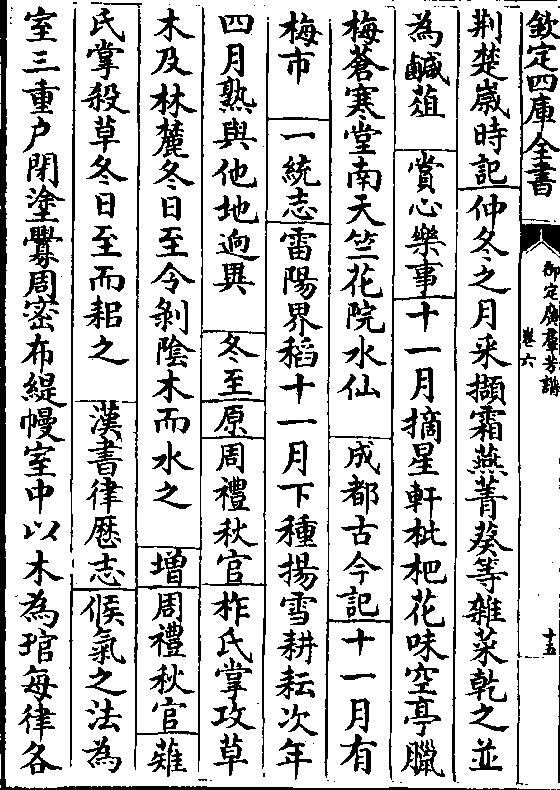 欽定四庫全書
御定廣羣芳譜
卷六
十五
荆楚嵗時記仲冬之月采擷霜燕菁葵等雜菜乾之並
為鹹葅 賞心樂事十一月摘星軒枇杷花味空亭臘
梅蒼寒堂南天竺花院水仙 成都古今記十一月有
梅市 一統志雷陽界稻十一月下種揚雪耕耘次年
四月熟與他地逈異 冬至原周禮秋官柞氏掌攻草
木及林麓冬日至令剝隂木而水之 増周禮秋官薙
氏掌殺草冬日至而耜之 漢書律厯志候氣之法為
室三重户閉塗釁周宻布緹幔室中以木為琯每律各